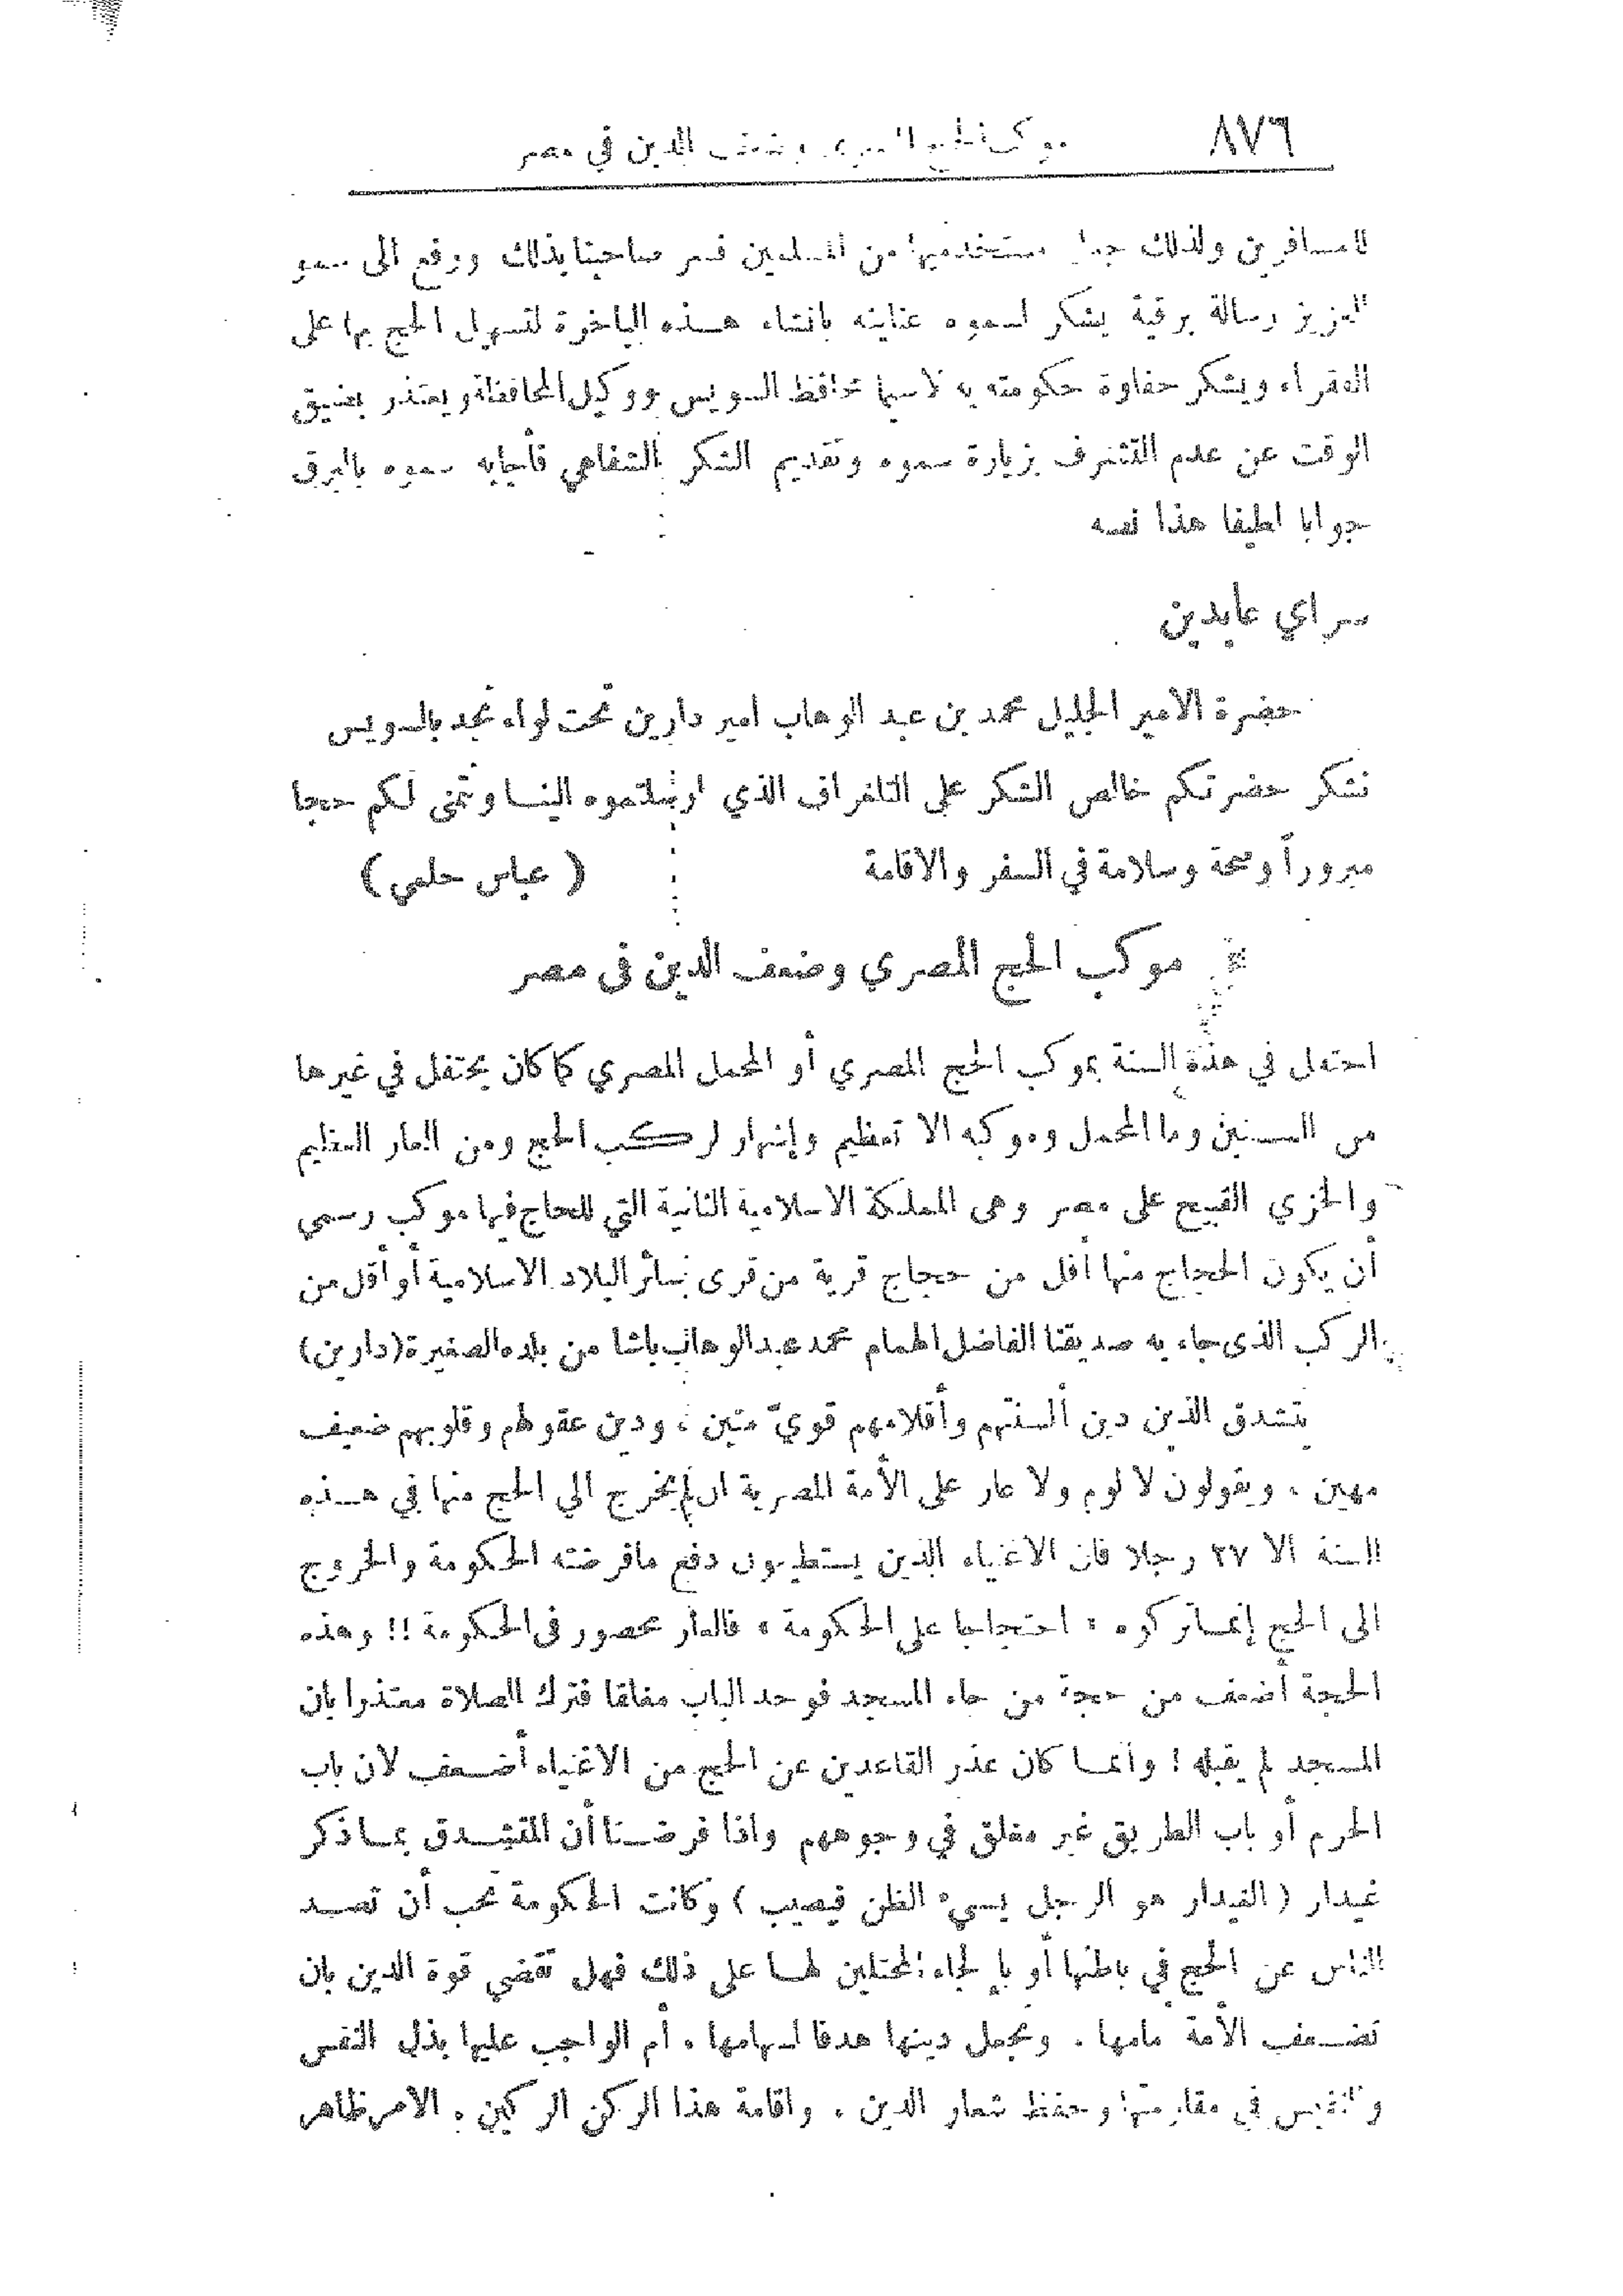 ٨٧٦ موكب الحج المصري وضعف الدين في مصر
للمسافرين ولذلك جعل مستخدميها من المسلمين فسر صاحبنا بذلك ورفع الى سمو
العزيز رسالة برقية يشكر لسموه عنايته بانشاء هـذه الباخرة لتسهيل الحج بها على
الفقراء ويشكر حفاوة حكومته به لاسيما محافظ السويس ووكيل المحافظة ويعتذر بضيق
الوقت عن عدم التشرف بزيارة سموه وتقديم الشكر الشفاهي فأجابه سموه بالبرق
جوابا لطيفا هذا نصه
سراي عابدين
حضرة الامير الجليل محمد بن عبد الوهاب امير دارين تحت لواء نجد بالسويس
نشكر حضرتكم خالص الشكر على التلغراف الذي ارسلتموه الينـا ونتمنى لكم حجا
مبروراً وصحة وسلامة في السفر والاقامة ( عباس حلمي )
موكب الحج المصري وضعف الدين فى مصر
احتفل في هذه السنة بموكب الحج المصري أو المحمل المصري كما كان يحتفل في غيرها
من السـنين وما المحمل وموكبه الا تعظيم وإشهار لركب الحج ومن العار العظيم
والخزي القبيح على مصر وهى المملكة الاسلامية الثانية التي للحاج فيها موكب رسمي
أن يكون الحجاج منها أقل من حجاج قرية من قرى سائر البلاد الاسلامية أو أقل من
الركب الذى جاء به صديقنا الفاضل الهمام محمد عبد الوهاب باشا من بلده الصغيرة (دارين)
يتشدق الذين دين ألسنتهم وأقلامهم قويّ متين ، ودين عقولهم وقلوبهم ضعيف
مهين ، ويقولون لا لوم ولا عار على الأمة المصرية ان لم يخرج الي الحج منها في هـذه
السنة الا ٢٧ رجلا فان الاغنياء الذين يستطيعون دفع مافرضته الحكومة والخروج
الى الحج إنمـا تركوه « احتجاجا على الحكومة » فالعار محصور فى الحكومة !! وهذه
الحجة أضعف من حجة من جاء المسجد فوجد الباب مغلقا فترك الصلاة معتذرا بان
المسجد لم يقبله ! وانمـا كان عذر القاعدين عن الحج من الاغنياء أضـعف لان باب
الحرم أو باب الطريق غير مغلق في وجوههم واذا فرضـنا أن المتشـدق بمـا ذكر
غيدار ( الغيدار هو الرجل يسيء الظن فيصيب ) وكانت الحكومة تحب أن تصـد
الناس عن الحج في باطنها أو بإلجاء المحتلين لهـا على ذلك فهل تقضي قوة الدين بان
تضـعف الأمة أمامها . وتجعل دينها هدفا لسهامها . أم الواجب عليها بذل النفس
والنفيس في مقاومتها وحفظ شعار الدين . واقامة هذا الركن الركين . الامر ظاهر